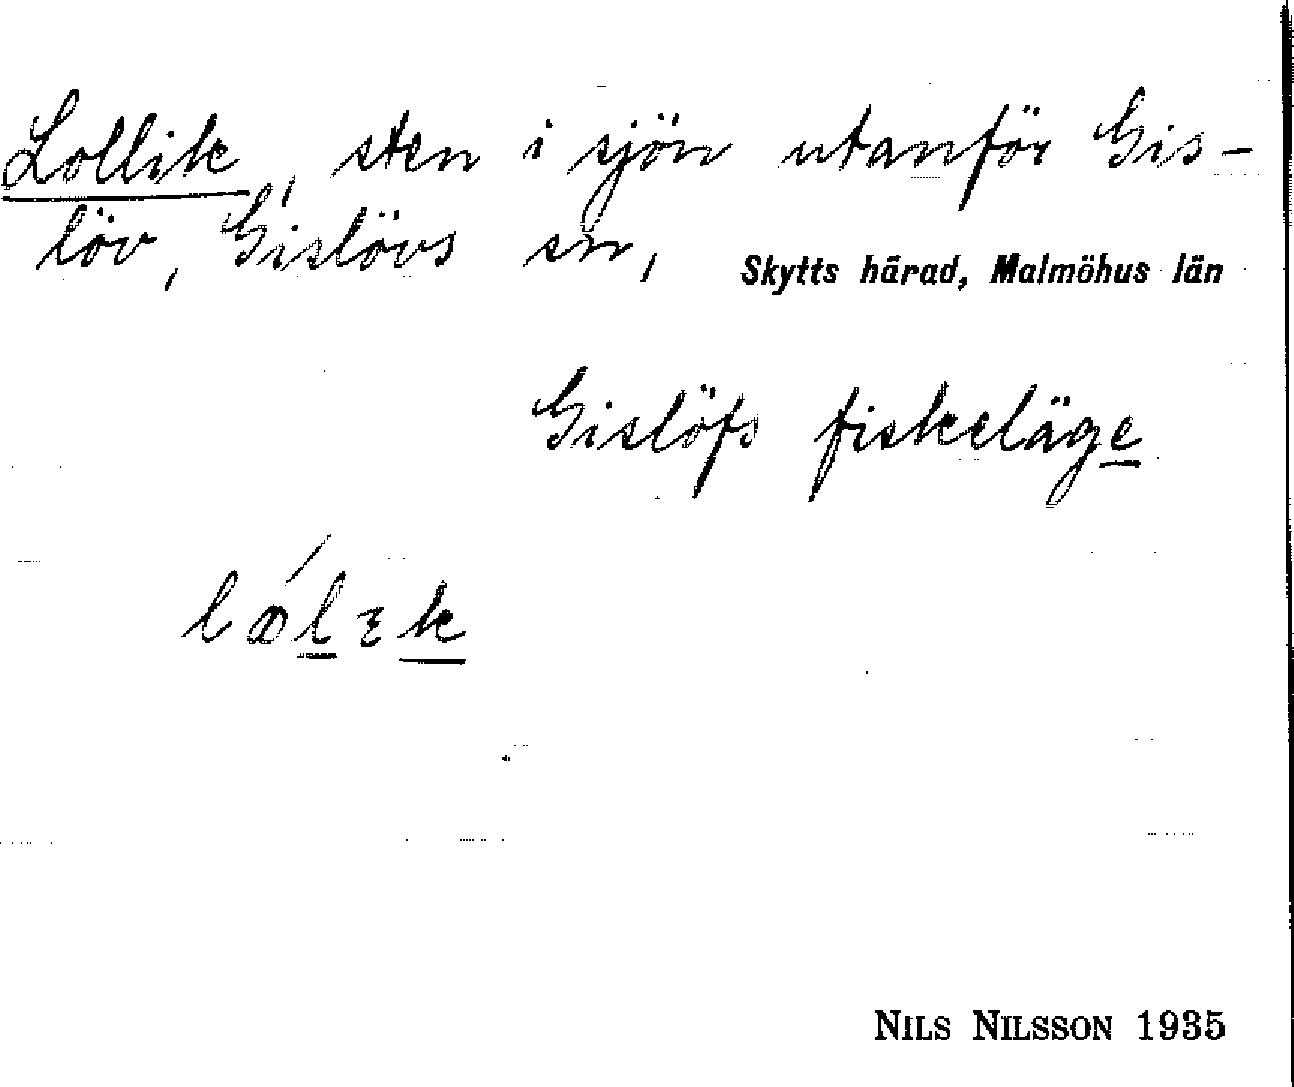 Lollik, sten i sjön utanför Gis-
löv, Gislövs sn, Skytts härad, Malmöhus län
Gislöfs fiskeläge
NILS NILSSON 1935